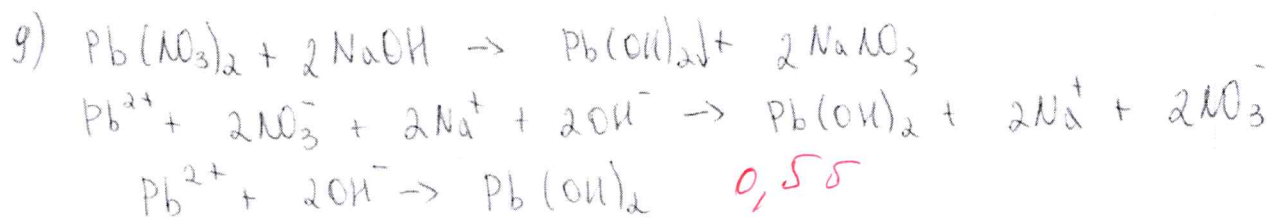 д) Pb(NO₃)₂ + 2NaOH → Pb(OH)₂↓ + 2NaNO₃
Pb²⁺ + 2NO₃⁻ + 2Na⁺ + 2OH⁻ → Pb(OH)₂ + 2Na⁺ + 2NO₃⁻
Pb²⁺ + 2OH⁻ → Pb(OH)₂ 0,5б